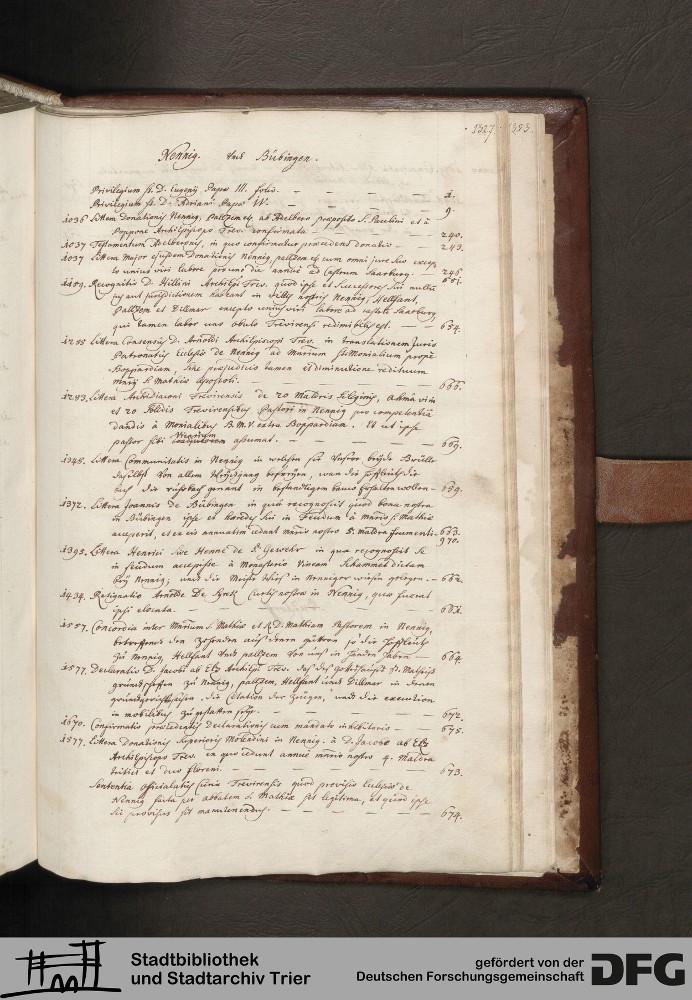 1327. 1383.
Nennig. und Bübingen.
Privilegium S. D. Eugenij Papæ III. folio. — 1.
Privilegium S. D. Adriani Papæ IV. — 9.
1036 Littera Donationis Nennig, Palzem etc. ab Adelbero præposito S. Paulini et à
Poppone Archiepiscopo Trev. confirmata — 240.
1037 Testamentum Adelberonis, in quo confirmatur præcedens donatio — 243.
1037 Littera Major ejusdem Donationis Nennig, palzem etc. cum omni jure suo excep-
to unius viri labore pro una die annuè ad Castrum Saarburg. — 246
651.
1159. Recognitio D. Hillini Archiepi Trev. quod ipse et successores sui nullum
jus aut jurisdictionem habeant in villis nostris Nennig, Hellfant,
Palzem et Dillmar excepto unius viri labore ad castrum Saarburg
qui tamen labor uno obulo Trevirensi redimibilis est. — 654.
1255 Littera Consensus D. Arnoldi Archiepiscopi Trev. in translationem Juris
Patronatus Ecclesiæ de Nennig ad Marium Stimonialium propè
Boppardiam, sine præjudicio tamen et diminutione redituum
Marij S. Mathiæ Apostoli. — 666.
1283. Littera Archidiaconi Trevirensis de 20 Maldris Siliginis, ahmâ vini
et 20 Solidis Trevirensibus Pastori in Nennig pro competentia
dandis à Monialibus B.M.V. extra Boppardiam. Et ut ipse
pastor sibi Vicarium assumat. — 669.
1345. Littera Communitatis in Nennig in welcher sie unser beyde Brülle
von allem Weydgang befreyen, wan die Hoffleuth die
bach die rüssbach genant in bestendigem bauw erhalten wollen — 659.
1372. Littera Joannis de Bübingen in quâ recognoscit quod bona nostra
in Bübingen ipse et hæredes sui in Feudum à Mario S. Mathiæ
acceperit, et ex eis annuatim cedant mario nostro 5. maldra frumenti. 663.
970.
1395. Littera Henrici sive Henne de in qua recognoscit se
in feudum accepisse à Monasterio Vineam Schammet dictam
bey Nennig; und die in wiesen gelegen. — 662.
1434. Resignatio Arnoldi De Synk Curtis nostræ in Nennig, quæ fuerat
ipsi elocata. — 661.
1557. Concordia inter Marium S. Mathiæ et R.D. Mathiam Pastorem in Nennig,
betreffend den Zehenden aus denen güttern so die Hoffleuth
zu Nennig, Hellfant und palzem von uns in handen haben — 664.
1577. Declaratio D. Jacobi ab Elz Archiepi Trev. daß des gottshauses St. Mathiæ
grundscheffen zu Nennig, palzem, Hellfant und Dillmar in denen
grundgerichtssachen die Citation der Zeugen, und die execution
in mobilibus zu gestatten seye. — 672.
1670. Confirmatio præcedentis Declarationis cum mandato inhibitorio — 675.
1577. Littera Donationis superioris Molendini in Nennig. à D. Jacobo ab Elz
Archiepiscopo Trev. ex quo cedunt annuè mario nostro 4. Maldra
tritici et duo floreni. — 673.
Sententia Officialatus Curiæ Trevirensis quod provisio Ecclesiæ de
Nennig facta per abbatem S. Mathiæ sit legitima, et quod ipse
sic provisus sit manutenendus. — 674.
Stadtbibliothek
und Stadtarchiv Trier
gefördert von der
Deutschen Forschungsgemeinschaft
DFG